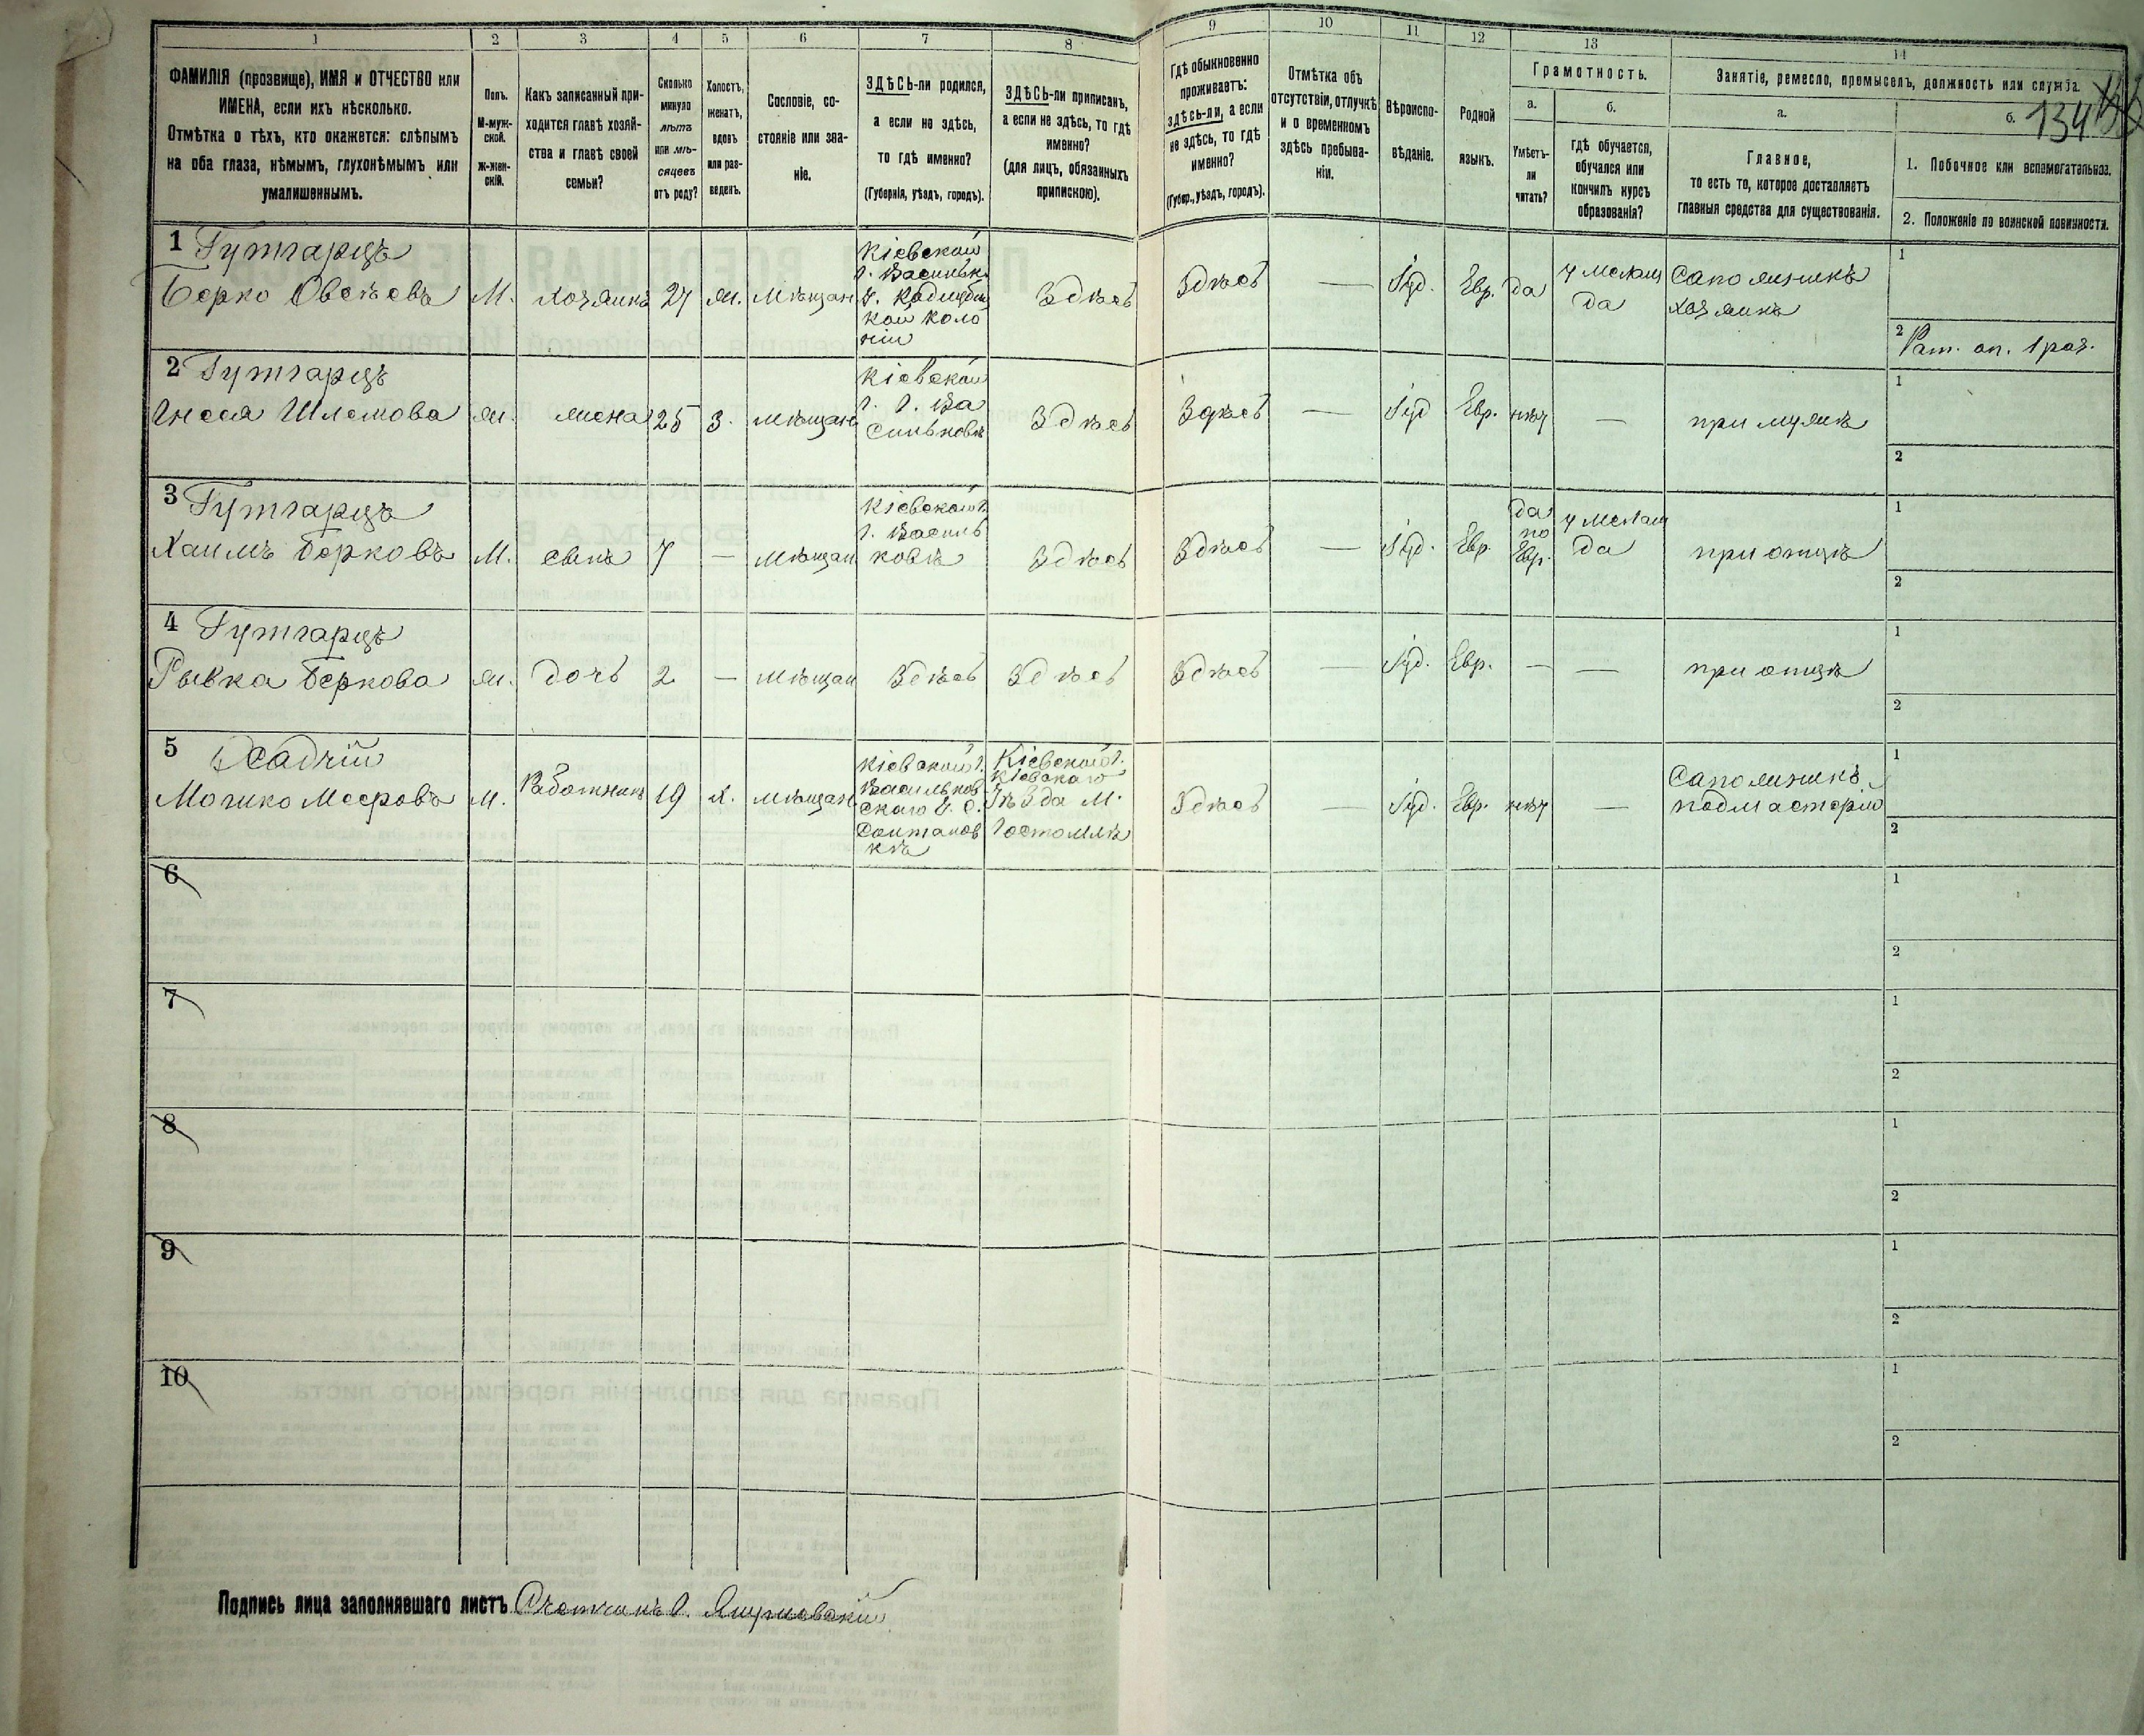 1 2 3 4 5 6 7 8 9 10 11 12 13 14
ФАМИЛІЯ (прозвище), ИМЯ и ОТЧЕСТВО или
ИМЕНА, если ихъ нѣсколько.
Отмѣтка о тѣхъ, кто окажется: слѣпымъ
на оба глаза, нѣмымъ, глухонѣмымъ или
умалишеннымъ.
Полъ.
М-муж-
ской.
Ж-жен-
скій.
Какъ записанный при-
ходится главѣ хозяй-
ства и главѣ своей
семьи?
Сколько
минуло
лѣтъ
или мѣ-
сяцевъ
отъ роду?
Холостъ,
женатъ,
вдовъ
или раз-
веденъ.
Сословіе, со-
стояніе или зва-
ніе.
ЗДѢСЬ-ли родился,
а если не здѣсь,
то гдѣ именно?
(Губернія, уѣздъ, городъ).
ЗДѢСЬ-ли приписанъ,
а если не здѣсь, то гдѣ
именно?
(для лицъ, обязанныхъ
припискою).
Гдѣ обыкновенно
проживаетъ:
здѣсь-ли, а если
не здѣсь, то гдѣ
именно?
(Губер., уѣздъ, городъ).
Отмѣтка объ
отсутствіи, отлучкѣ
и о временномъ
здѣсь пребыва-
ніи.
Вѣроиспо-
вѣданіе.
Родной
языкъ.
Грамотность.
а.
Умѣетъ-
ли
читать?
б.
гдѣ обучается,
обучался или
кончилъ курсъ
образованія?
Занятіе, ремесло, промыселъ, должность или служба.
а.
Главное,
то есть то, которое доставляетъ
главныя средства для существованія.
б.
134
1. Побочное или вспомогательное.
2. Положеніе по воинской повинности.
1 Гутгарцъ
Берко Овсѣевъ
М.
хозяинъ
27
ж.
мѣщан
Кіевской
г. Васильк
у.
кой коло
ніи
Здѣсь
Здѣсь
—
Іуд.
Евр.
да
да
Сапожникъ
хозяинъ
1
2 Рат. оп. 1 раз.
2 Гутгарцъ
Шлемова
ж.
жена
25
З.
мѣщан
Кіевской
г. Г. Ва
сильковѣ
Здѣсь
Здѣсь
—
Іуд
Евр.
нѣт
—
при мужѣ
1
2
3 Гутгарцъ
Хаимъ Берковъ
М.
сынъ
7
—
мѣщан
Кіевской г.
г. Василь
ковѣ
Здѣсь
Здѣсь
—
Іуд.
Евр.
да
по
Евр.
да
при отцѣ
1
2
4 Гутгарцъ
Рывка Беркова
ж.
дочь
2
—
мѣщан
Здѣсь
Здѣсь
Здѣсь
—
Іуд.
Евр.
—
—
при отцѣ
1
2
5 Осадчій
Мошко Мееровъ
М.
Работник
19
х.
мѣщан
Кіевской г.
Васильков
скаго У. С.
Солтанов
кѣ
Кіевской г.
Кіевскаго
уѣзда М.
Гостомлѣ
Здѣсь
—
Іуд.
Евр.
нѣт
—
Сапожникъ
подмастерію
1
2
6
1
2
7
1
2
8
1
2
9
1
2
10
1
2
Подпись лица заполнявшаго листъ Счетчикъ